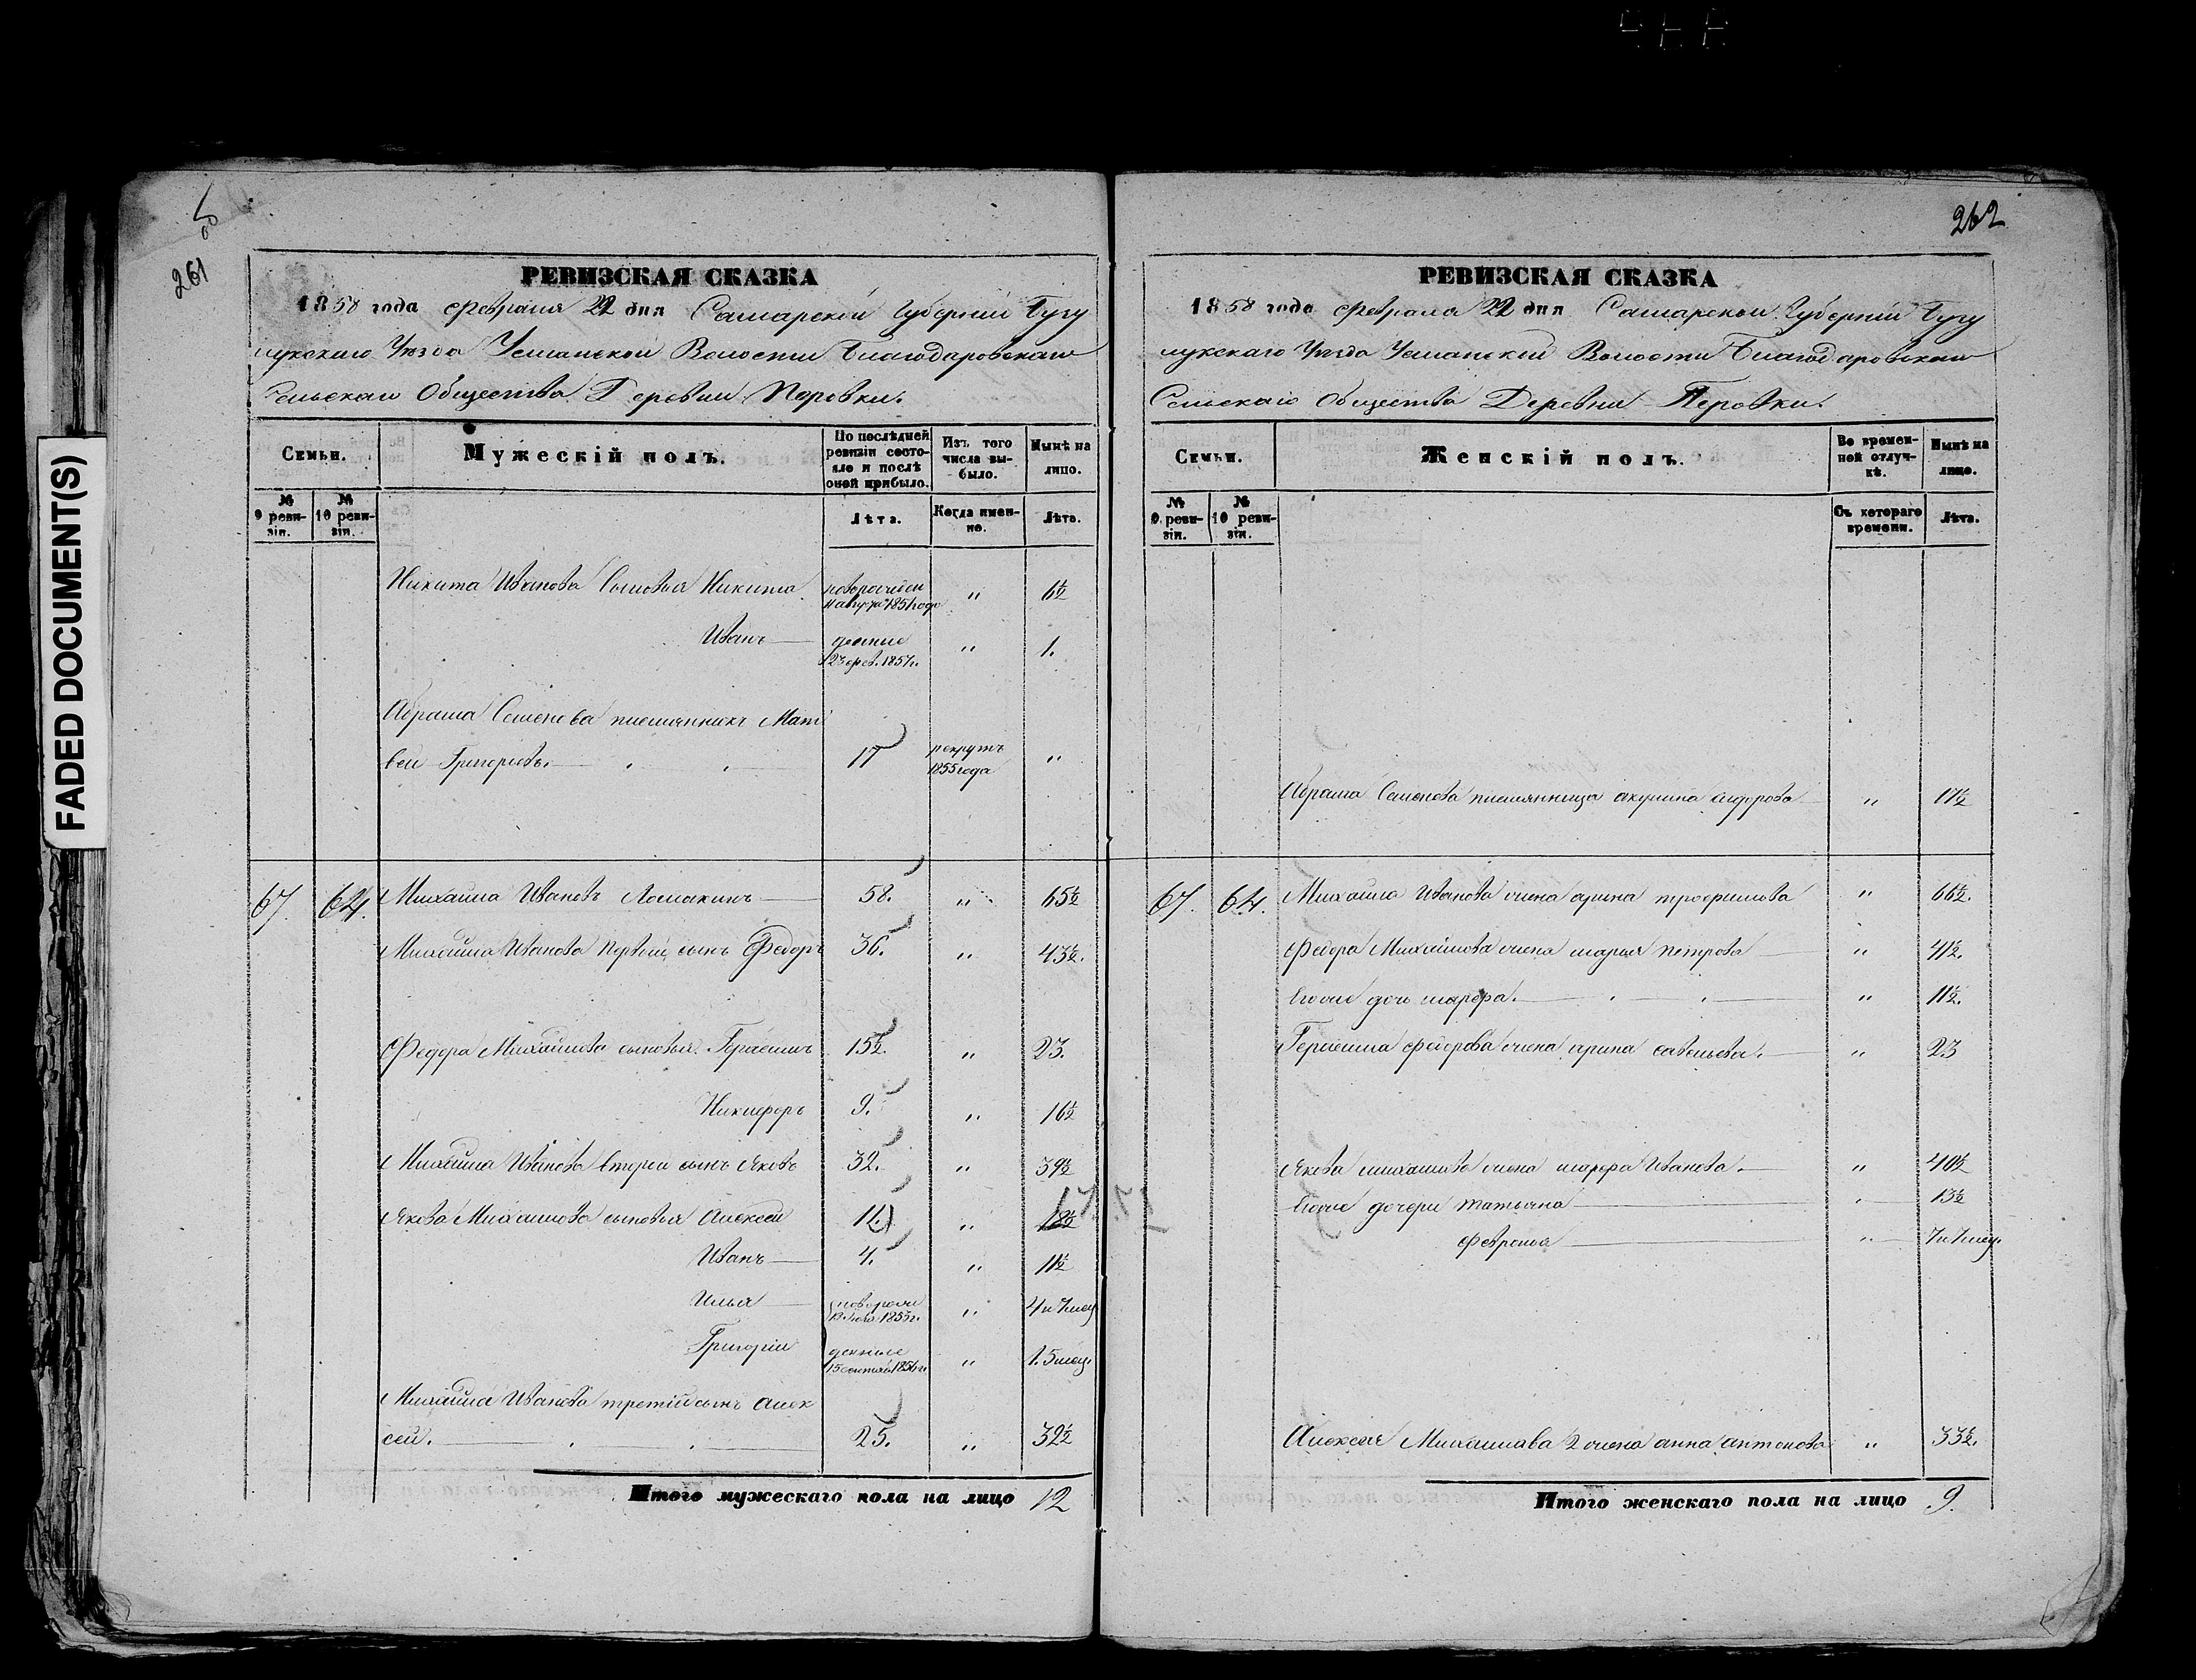 FADED DOCUMENT(S)
261
РЕВИЗСКАЯ СКАЗКА
1858 года февраля 22 дня Самарской Губерніи Бугу
Уезда Усманской Волости Благодаровскаго
Сельскаго Общества Деревни Перовки.
Семьи.
Мужескій полъ.
По послѣдней ревизіи состояло и послѣ оной прибыло.
Изъ того числа выбыло.
Нынѣ на лицо.
№ 9 ревизіи.
№ 10 ревизіи.
Лѣта.
Когда именно.
Лѣта.
Никита Иванова Сыновья Никита новорожден 1851 года " 6½
Иванъ 1857г. " 1.
Абрама Семенова племянникъ Мат
вей Григорьевъ. 17 рекрутъ 1855 года "
67. 64. Михаила Ивановъ Ломакинъ 58. " 65½
Михаила Иванова Первый сынъ Федоръ 36. " 43½.
Федора Михайлова сыновья Герасимъ 15½. " 23.
Никифоръ 9. " 16½
Михайла Иванова второй сынъ Яковъ 32. " 39½
Якова Михайлова сыновья Алексей 11 " 18½
Иванъ 4. " 11½
Илья " 4 и 7 мес
Григорій 15 1856 г. " 1. 5 мец.
Михайла Иванова третій сынъ Алек
сей. 25. " 32½
Итого мужескаго пола на лицо 12
262
РЕВИЗСКАЯ СКАЗКА
1858 года февраля 22 дня Самарской Губерніи Бугу
Уезда Усманской Волости Благодаровскаго
Сельскаго Общества Деревни Перовки.
Семьи.
Женскій полъ.
Во временной отлучкѣ.
Нынѣ на лицо.
№ 9 ревизіи.
№ 10 ревизіи.
Съ котораго времени.
Лѣта.
Абрама Семенова племянница акулина сидорова " 17½
67. 64. Михаила Иванова жена арина трофимова " 66½.
Федора Михайлова жена марья петрова " 41½.
Егоже дочь марфа. " 11½.
Герасима федорова жена арина савельева. " 23
Якова михайлова жена марфа Иванова. " 40½
Егоже дочери татьяна 13½
февронья " 7 и 7 мец.
Алексея Михайлова 2 жена анна антонова " 33½.
Итого женскаго пола на лицо 9.